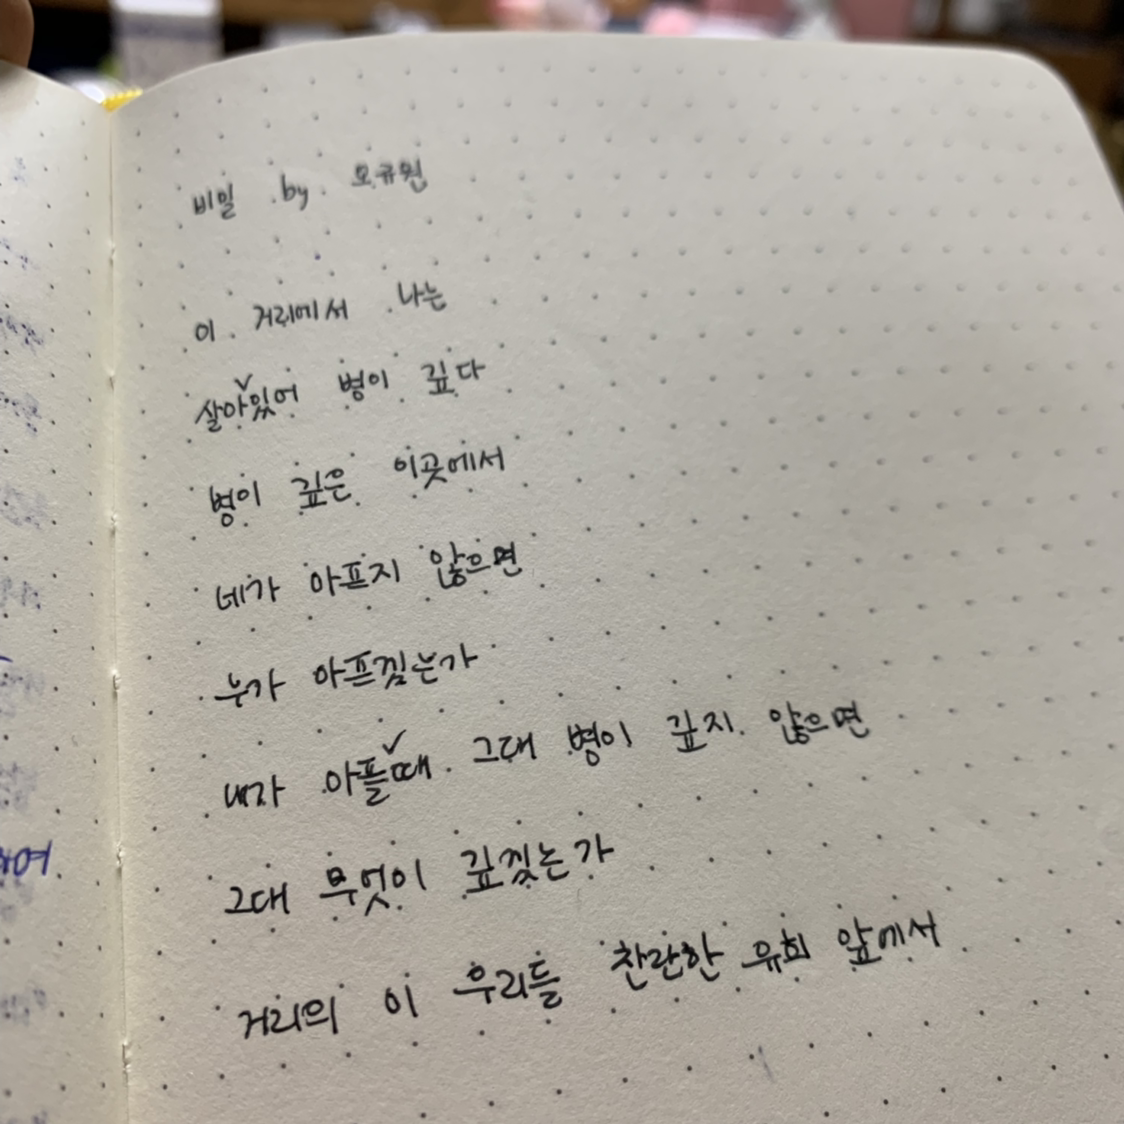 비밀 by 오규원
이 거리에서 나는
살아✓있어 병이 깊다
병이 깊은 이곳에서
네가 아프지 않으면
누가 아프겠는가
내가 아플✓때 그대 병이 깊지 않으면
그대 무엇이 깊겠는가
거리의 이 우리들 찬란한 유희 앞에서
하여